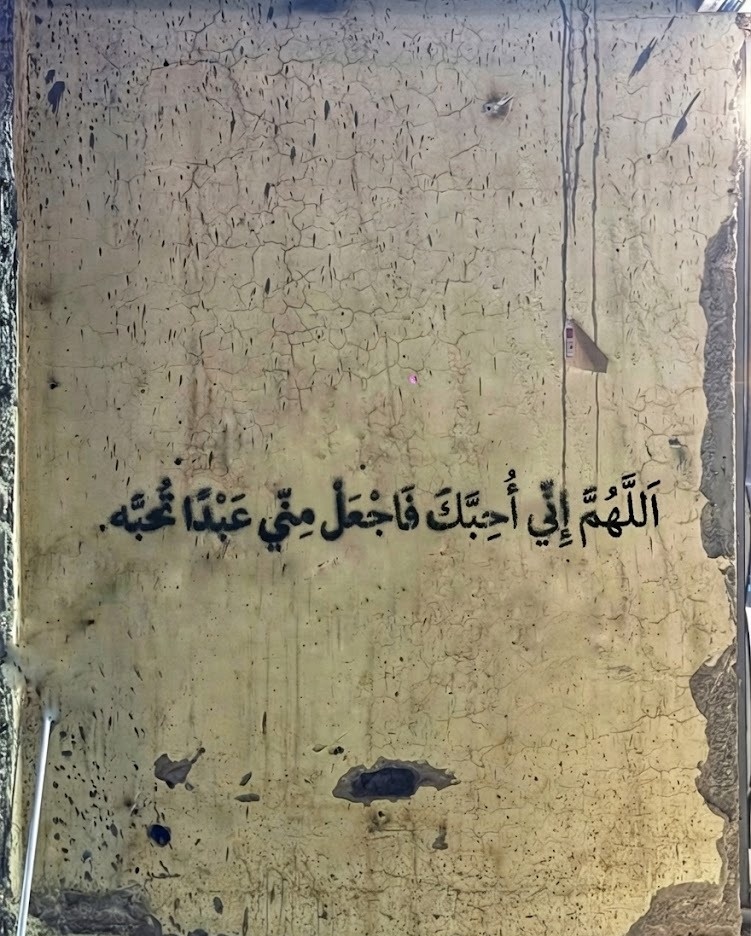 اَللَّهُمَّ إِنِّي أُحِبَّكَ فَاجْعَلْ مِنّي عَبْدًا تُحبَّه.